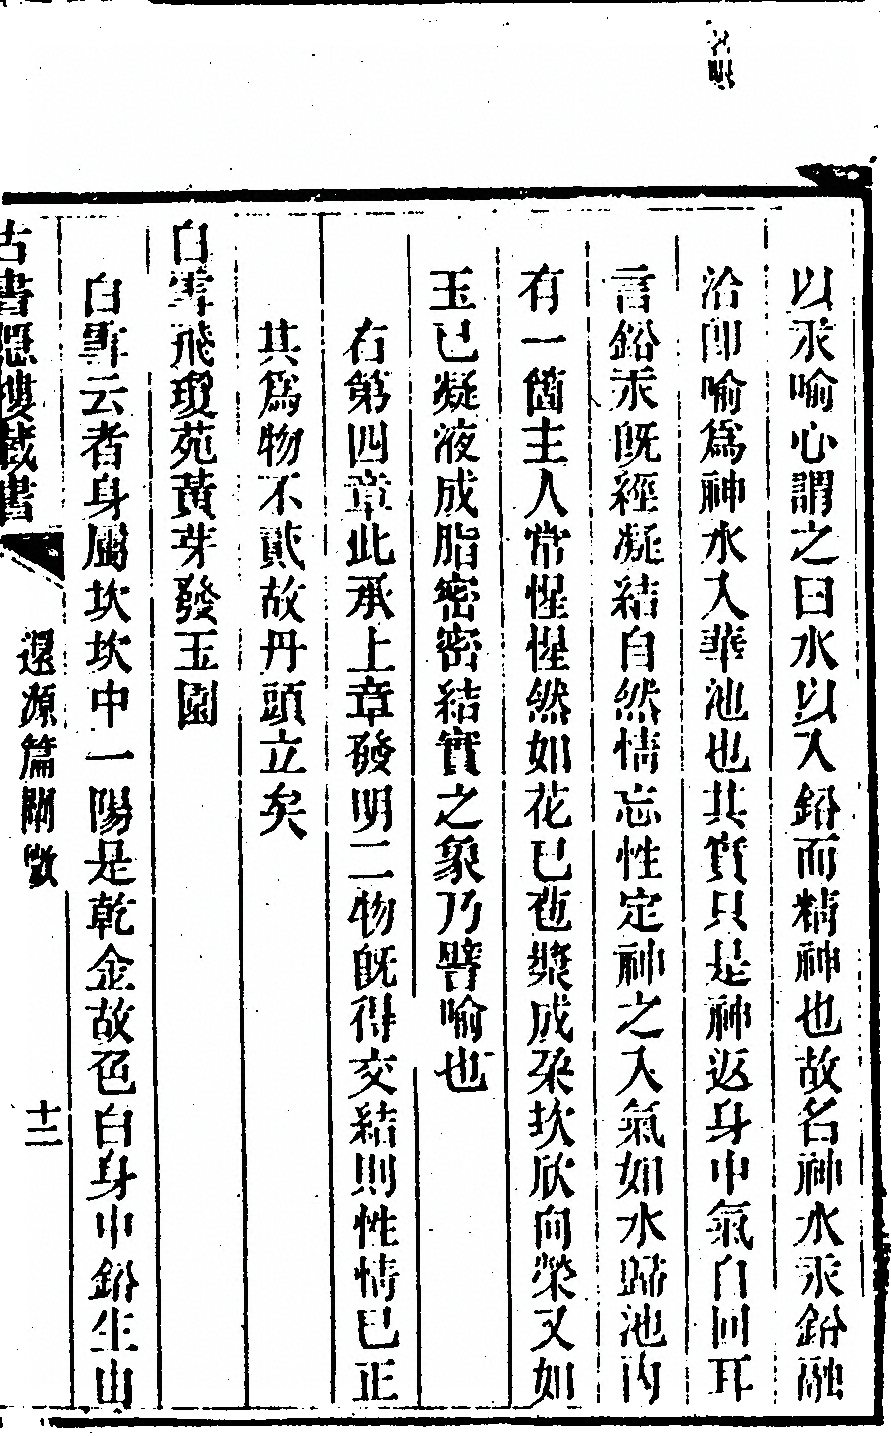 名眼
以汞喻心謂之曰水以入鉛而精神也故名神水汞鉛融
洽卽喻爲神水入華池也其實只是神返身中氣自回耳
言鉛汞旣經凝結自然情忘性定神之入氣如水歸池內
有一箇主人常惺惺然如花已苞漿成朶坎欣向榮又如
玉已凝液成脂密密結實之象乃譬喻也
右第四章此承上章發明二物旣得交結則性情已正
其爲物不貳故丹頭立矣
白雪飛瓊苑黃芽發玉園
白雪云者身屬坎坎中一陽是乾金故色白身中鉛生山
古書隱樓藏書
還源篇闡微
十二